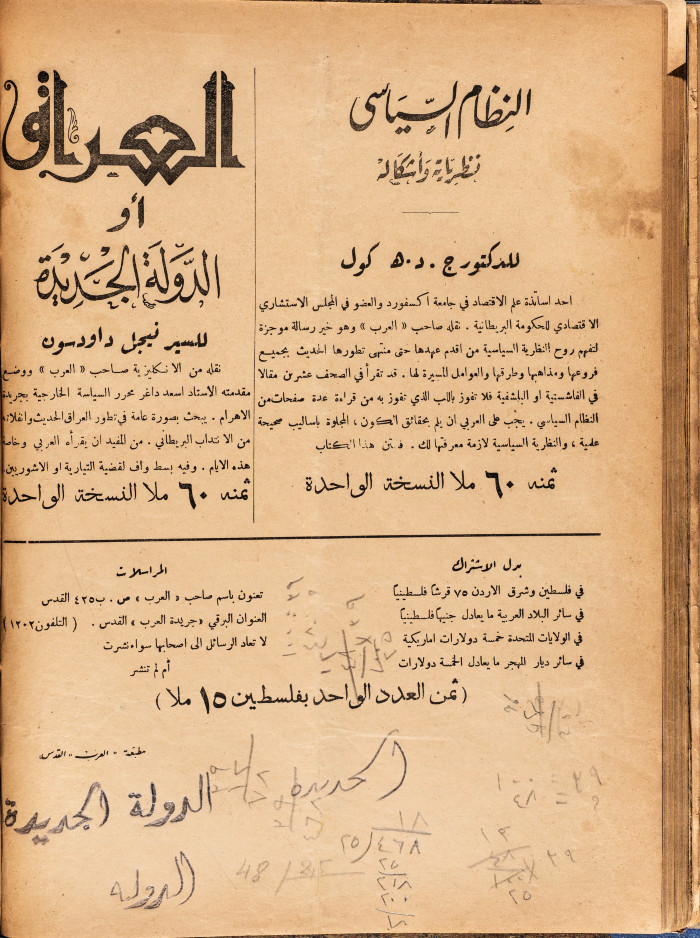 النظام السياسي
نظرياته وأشكاله
للدكتور ج . د . ه كول
احد اساتذة علم الاقتصاد في جامعة أكسفورد والعضو في المجلس الاستشاري
الاقتصادي للحكومة البريطانية . نقله صاحب « العرب » وهو خير رسالة موجزة
لتفهم روح النظرية السياسية من اقدم عهدها حتى منتهى تطورها الحديث بجميع
فروعها ومذاهبها وطرقها والعوامل المسيرة لها . قد تقرأ في الصحف عشرين مقالا
في الفاشستية او البلشفية فلا تفوز باللب الذي تفوز به من قراءة عدة صفحات من
النظام السياسي . يجب على العربي ان يلم بحقائق الكون ، المجلوة باساليب صحيحة
علمية ، والنظرية السياسية لازمة معرفتها لك . فاقتن هذا الكتاب
ثمنه ٦٠ ملا النسخة الواحدة
العراق
أو
الدولة الجديدة
للسير نيجل داودسون
نقله من الانكليزية صاحب « العرب » ووضع
مقدمته الأستاذ اسعد داغر محرر السياسة الخارجية بجريدة
الاهرام . يبحث بصورة عامة في تطور العراق الحديث وانفلاته
من الانتداب البريطاني . من المفيد ان يقرأه العربي وخاصة
هذه الايام . وفيه بسط واف لقضية التيارية او الاشوريين.
ثمنه ٦٠ ملا النسخة الواحدة
بدل الاشتراك
في فلسطين وشرق الاردن ٧٥ قرشا فلسطينيا
في سائر البلاد العربية ما يعادل جنيها فلسطينيا
في الولايات المتحدة خمسة دولارات اماريكية
في سائر ديار المهجر ما يعادل الخمسة دولارات
المراسلات
تعنون باسم صاحب « العرب » ص . ب ٤٢٥ القدس
العنوان البرقي «جريدة العرب» القدس . ( التلفون ١٢٠٢ )
لا تعاد الرسائل الى اصحابها سواء نشرت
أم لم تنشر
(ثمن العدد الواحد بفلسطين ١٥ ملا )
مطبعة «العرب» القدس
الدولة الجديدة
الدوله
١٨
٤٦٨ / ٢٥
٢٥